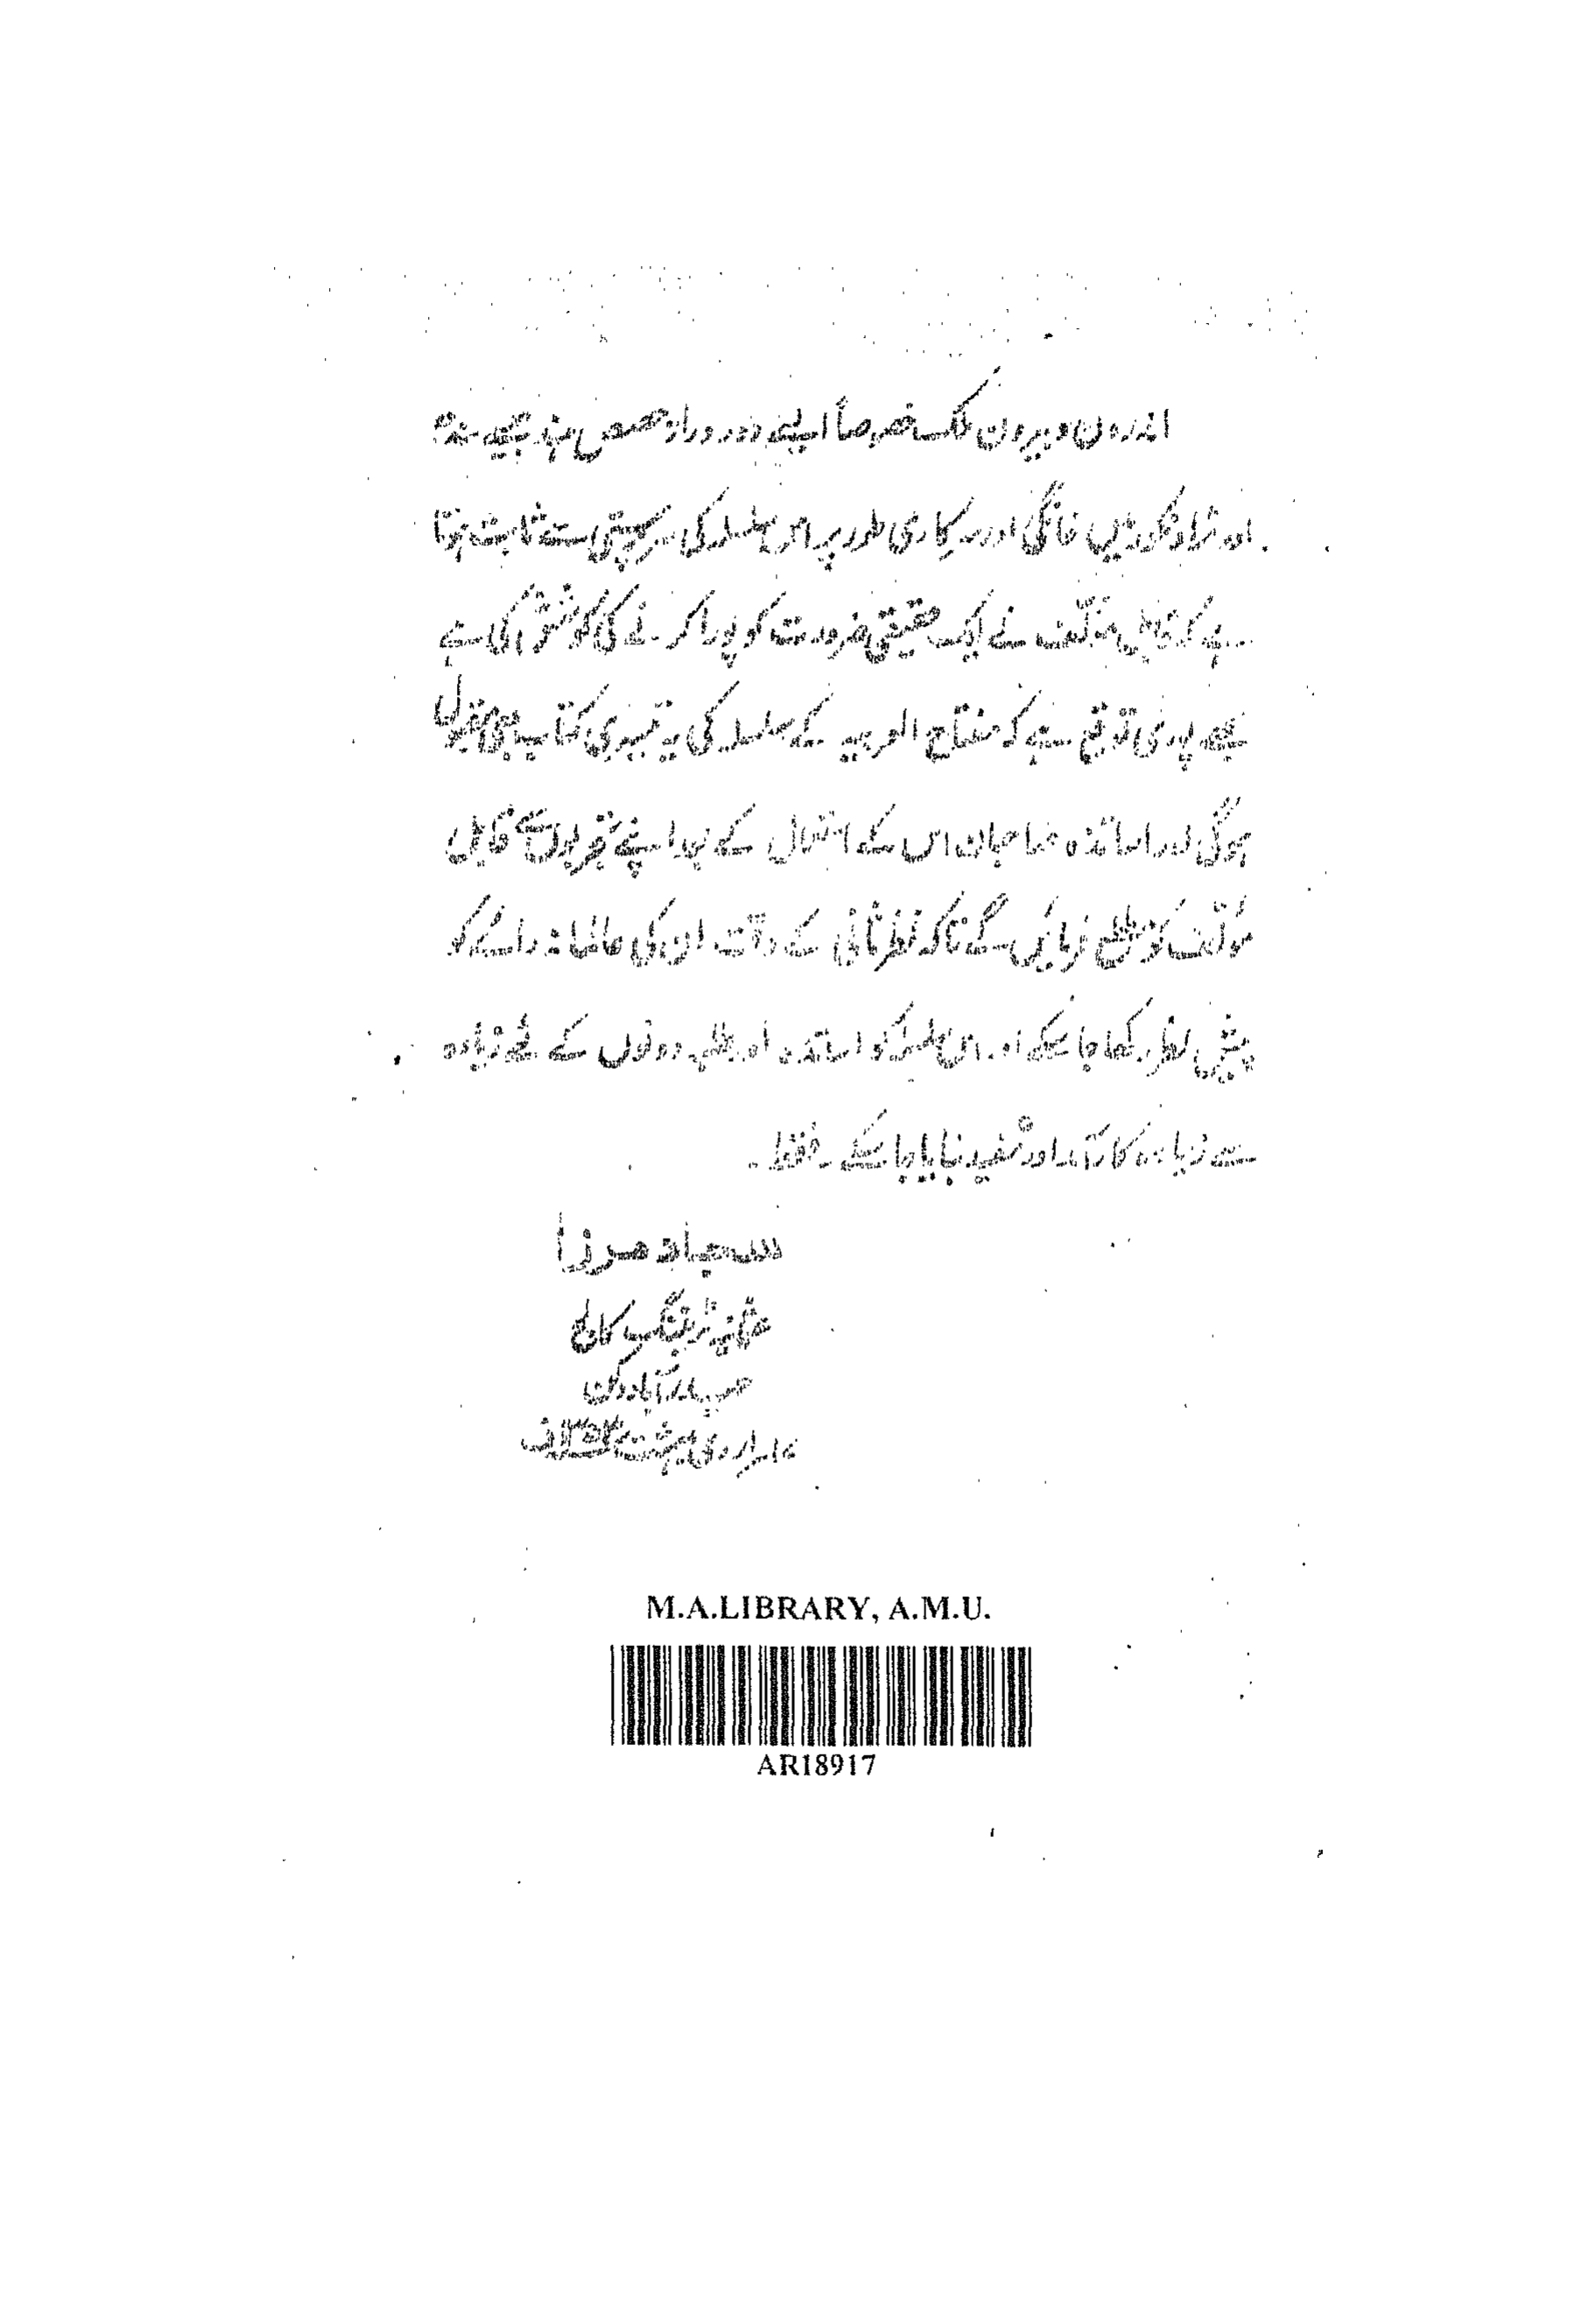 اندرون و بیرون ملک خصوصاً ایسے دور دراز حصص ہند جیسے سندھ
اور ٹراونکور میں خانگی اور سرکاری طور پر اس سلسلہ کی سرپرستی سے ثابت ہوتا
ہے کہ فاضل مؤلف نے ایک حقیقی ضرورت کو پورا کرنے کی کوشش کی ہے
مجھے پوری توقع ہے کہ مفتاح العربیہ کے سلسلہ کی یہ تیسری کتاب بھی مقبول
ہوگی اور اساتذہ صاحبان اس کے استعمال کے بعد اپنے تجربوں سے فاضل
مؤلف کو مطلع فرمائیں گے تاکہ نظر ثانی کے وقت ان کی عالمانہ رائے کو
پیش نظر رکھا جا سکے اور اس سلسلہ کو اساتذہ اور طلبہ دونوں کے لئے زیادہ
سے زیادہ کارآمد اور مفید بنایا جا سکے ۔ فقط ۔
سجاد مرزا
عثمانیہ ٹریننگ کالج
حیدرآباد دکن
اردی بہشت
M.A.LIBRARY, A.M.U.
AR18917